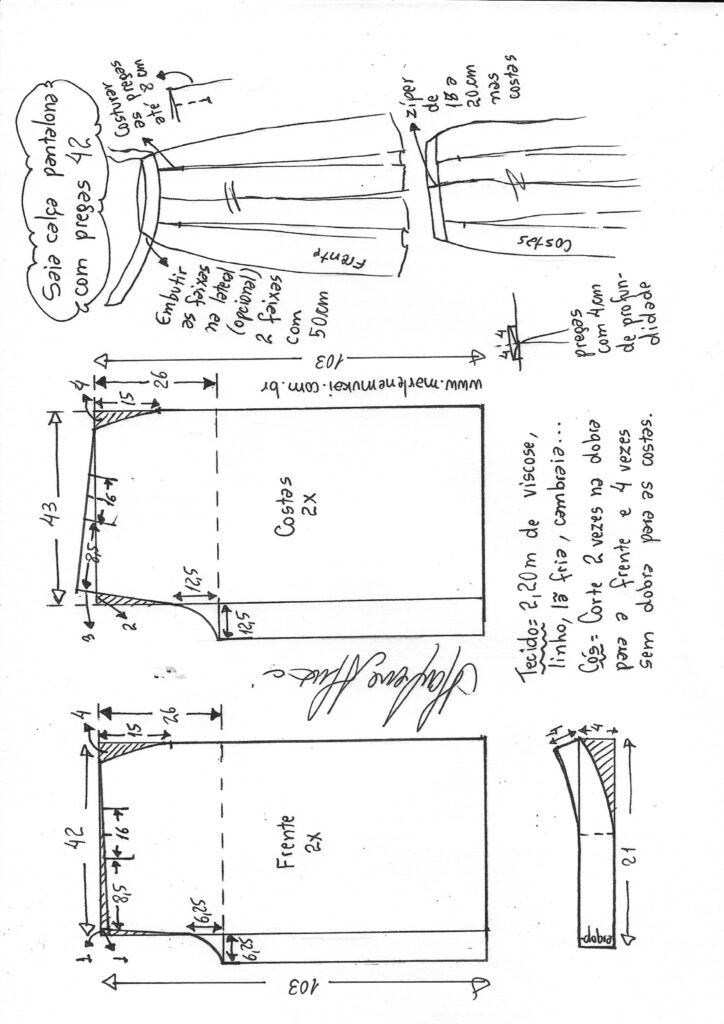 Saia calça pantalona
com pregas 42
Costurar
as pregas
até 8 cm
Embutir
as faixas
na lateral
(opcional)
2 faixas
com
50cm
Frente
zíper
de
18 a
20cm
nas
costas
Costas
4 4
pregas
com 4cm
de profun-
didade
42
4
15
26
8,5
16
1
1
6,25
6,25
103
Frente
2x
43
4
15
26
8,5
16
3
2
12,5
12,5
103
Costas
2x
www.marlenemukai.com.br
Tecido= 2,20m de viscose,
linho, lã fria, cambraia...
Cós= Corte 2 vezes na dobra
para a frente e 4 vezes
sem dobra para as costas.
dobra
4
4
21